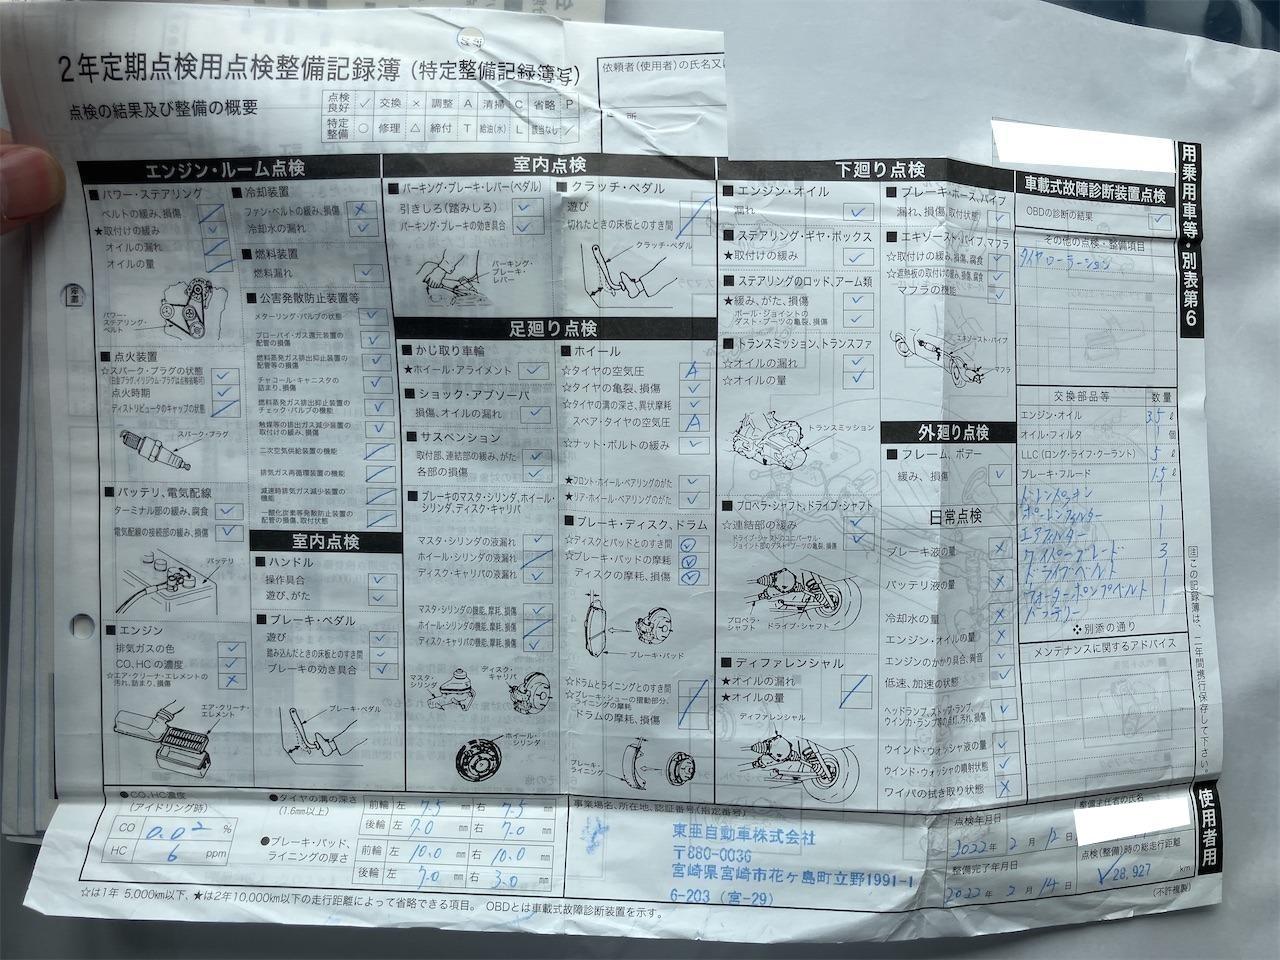 2年定期点検用点検整備記録簿(特定整備記録簿写)
点検の結果及び整備の概要
点検良好 ✓ 交換 × 調整 A 清掃 C 省略 P
特定整備 ○ 修理 △ 締付 T 給油(水) L 該当なし /
依頼者(使用者)の氏名又は
所
用乗用車等・別表第6
エンジン・ルーム点検
■パワー・ステアリング
ベルトの緩み、損傷
★取付けの緩み
オイルの漏れ
オイルの量
パワー・ステアリング・ベルト
■点火装置
☆スパーク・プラグの状態
(白金プラグ、イリジウム・プラグは点検省略可)
点火時期
ディストリビュータのキャップの状態
スパーク・プラグ
■バッテリ、電気配線
ターミナル部の緩み、腐食
電気配線の接続部の緩み、損傷
バッテリ
■エンジン
排気ガスの色
CO、HCの濃度
☆エア・クリーナ・エレメントの汚れ、詰まり、損傷
エア・クリーナ・エレメント
■冷却装置
ファン・ベルトの緩み、損傷
冷却水の漏れ
■燃料装置
燃料漏れ
■公害発散防止装置等
メターリング・バルブの状態
ブローバイ・ガス還元装置の配管の損傷
燃料蒸発ガス排出抑止装置の配管等の損傷
チャコール・キャニスタの詰まり、損傷
燃料蒸発ガス排出抑止装置のチェック・バルブの機能
触媒等の排出ガス減少装置の取付けの緩み、損傷
二次空気供給装置の機能
排気ガス再循環装置の機能
減速時排気ガス減少装置の機能
一酸化炭素等発散防止装置の配管の損傷、取付状態
室内点検
■ハンドル
操作具合
遊び、がた
■ブレーキ・ペダル
遊び
踏み込んだときの床板とのすき間
ブレーキの効き具合
ブレーキ・ペダル
室内点検
■パーキング・ブレーキ・レバー(ペダル)
引きしろ(踏みしろ)
パーキング・ブレーキの効き具合
パーキング・ブレーキ・レバー
■クラッチ・ペダル
遊び
切れたときの床板とのすき間
クラッチ・ペダル
足廻り点検
■かじ取り車輪
★ホイール・アライメント
■ショック・アブソーバ
損傷、オイルの漏れ
■サスペンション
取付部、連結部の緩み、がた
各部の損傷
■ブレーキのマスタ・シリンダ、ホイール・シリンダ、ディスク・キャリパ
マスタ・シリンダの液漏れ
ホイール・シリンダの液漏れ
ディスク・キャリパの液漏れ
マスタ・シリンダの機能、摩耗、損傷
ホイール・シリンダの機能、摩耗、損傷
ディスク・キャリパの機能、摩耗、損傷
マスタ・シリンダ
ディスク・キャリパ
ホイール・シリンダ
■ホイール
☆タイヤの空気圧 A
☆タイヤの亀裂、損傷
☆タイヤの溝の深さ、異状摩耗
スペア・タイヤの空気圧 A
☆ナット・ボルトの緩み
★フロント・ホイール・ベアリングのがた
★リア・ホイール・ベアリングのがた
■ブレーキ・ディスク、ドラム
☆ディスクとパッドとのすき間
☆ブレーキ・パッドの摩耗
ディスクの摩耗、損傷
ブレーキ・パッド
☆ドラムとライニングとのすき間
☆ブレーキ・シューの摺動部分、ライニングの摩耗
ドラムの摩耗、損傷
ブレーキ・ライニング
下廻り点検
■エンジン・オイル
漏れ
■ステアリング・ギヤ・ボックス
★取付けの緩み
■ステアリングのロッド、アーム類
★緩み、がた、損傷
ボール・ジョイントのダスト・ブーツの亀裂、損傷
■トランスミッション、トランスファ
☆オイルの漏れ
☆オイルの量
トランスミッション
■プロペラ・シャフト、ドライブ・シャフト
☆連結部の緩み
ドライブ・シャフトのユニバーサル・ジョイント部のダスト・ブーツの亀裂、損傷
プロペラ・シャフト ドライブ・シャフト
■ディファレンシャル
★オイルの漏れ
★オイルの量
ディファレンシャル
■ブレーキ・ホース、パイプ
漏れ、損傷、取付状態
■エキゾースト・パイプ、マフラ
☆取付けの緩み、損傷、腐食
☆遮熱板の取付けの緩み、損傷、腐食
マフラの機能
エキゾースト・パイプ
マフラ
外廻り点検
■フレーム、ボデー
緩み、損傷
日常点検
ブレーキ液の量
バッテリ液の量
冷却水の量
エンジン・オイルの量
エンジンのかかり具合、異音
低速、加速の状態
ヘッドランプ、ストップ・ランプ、ウインカ・ランプ等の点灯、汚れ、損傷
ウインド・ウォッシャ液の量
ウインド・ウォッシャの噴射状態
ワイパの拭き取り状態
車載式故障診断装置点検
OBDの診断の結果
その他の点検・整備項目
タイヤローテーション
交換部品等 数量
エンジン・オイル 3.5 ℓ
オイル・フィルタ 1 個
LLC(ロング・ライフ・クーラント) 5 ℓ
ブレーキ・フルード 1.5 ℓ
ドレンパッキン 1
ポーレンフィルター 1
エアフィルター 1
ワイパーブレード 3
ドライブベルト 1
ウォーターポンプベルト 1
バッテリー 1
❖別添の通り
メンテナンスに関するアドバイス
注 この記録簿は、二年間携行保存して下さい。
使用者用
●CO、HC濃度
(アイドリング時)
CO 0.02 %
HC 6 ppm
●タイヤの溝の深さ
(1.6mm以上)
前輪 左 7.5 mm 右 7.5 mm
後輪 左 7.0 mm 右 7.0 mm
●ブレーキ・パッド、ライニングの厚さ
前輪 左 10.0 mm 右 10.0 mm
後輪 左 7.0 mm 右 3.0 mm
事業場名、所在地、認証番号(指定番号)
東亜自動車株式会社
〒880-0036
宮崎県宮崎市花ヶ島町立野1991-1
6-203 (宮-29)
点検年月日
2022年 2月 12日
整備完了年月日
2022年 2月 14日
整備主任者の氏名
点検(整備)時の総走行距離
✓28,927 km
☆は1年 5,000km以下、★は2年10,000km以下の走行距離によって省略できる項目。 OBDとは車載式故障診断装置を示す。
(不許複製)